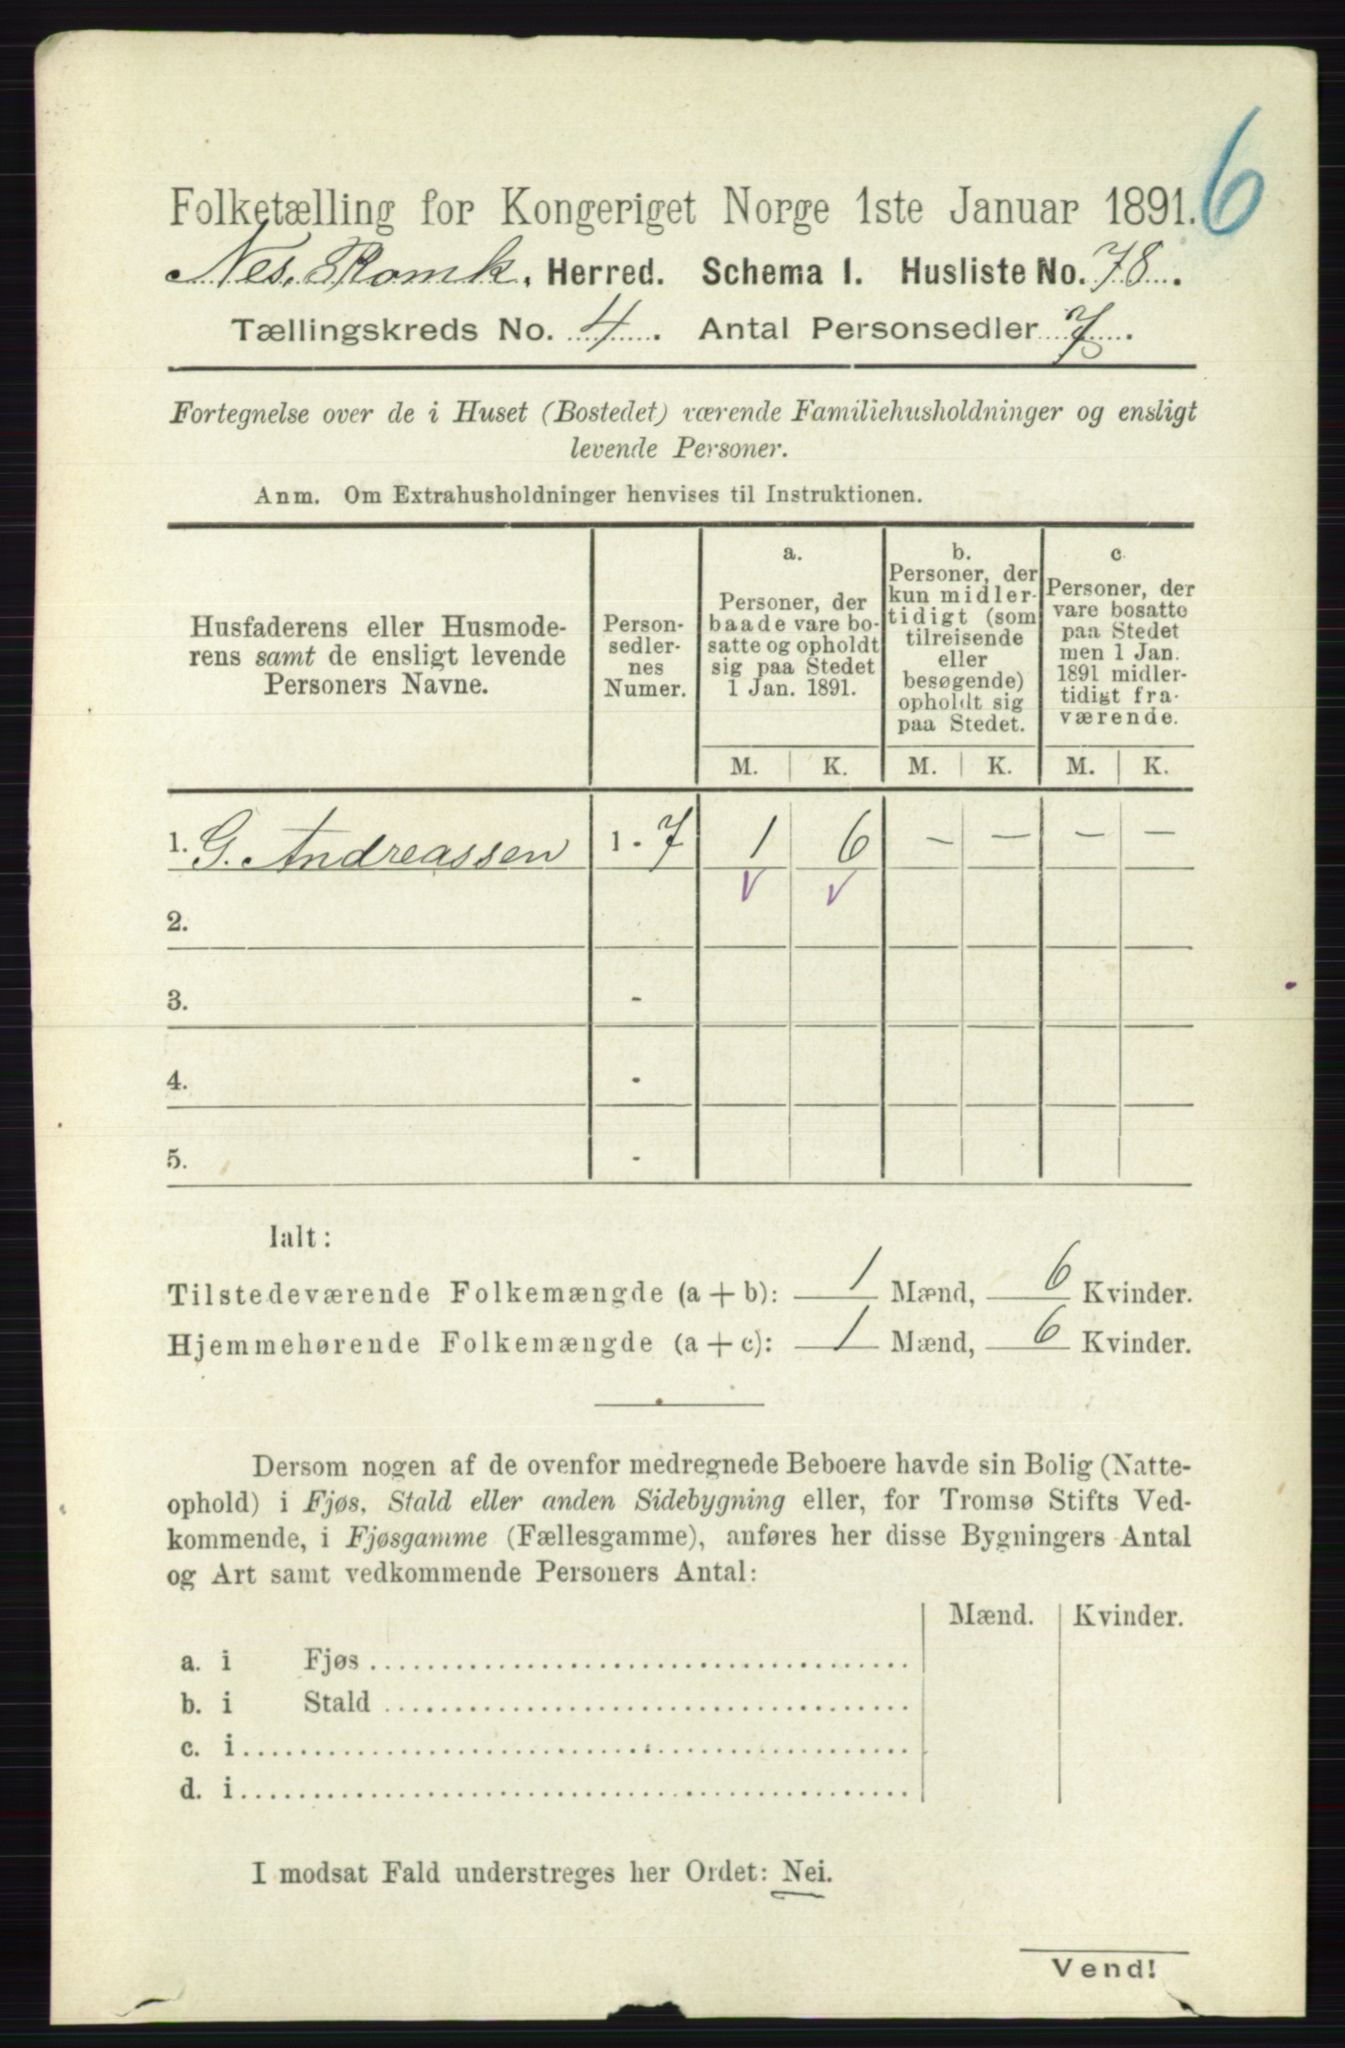 6
Folketælling for Kongeriget Norge 1ste Januar 1891.
Nes. Romk. Herred. Schema 1. Husliste No. 78.
Tællingskreds No. 4. Antal Personsedler 7.
Fortegnelse over de i Huset (Bostedet) værende Familiehusholdninger og ensligt
levende Personer.
Anm. Om Extrahusholdninger henvises til Instruktionen.
Husfaderens eller Husmode-
rens samt de ensligt levende
Personers Navne.
Person-
sedler-
nes
Numer.
a.
Personer, der
baade vare bo-
satte og opholdt
sig paa Stedet
1 Jan. 1891.
M. K.
b.
Personer, der
kun midler-
tidigt (som
tilreisende
eller
besøgende)
opholdt sig
paa Stedet.
M. K.
c
Personer, der
vare bosatte
paa Stedet
men 1 Jan.
1891 midler-
tidigt fra-
værende.
M. K.
1. G. Andreassen 1 - 7 1 6 — — — —
2.
3. -
4. -
5. -
Ialt:
Tilstedeværende Folkemængde (a + b): 1 Mænd, 6 Kvinder.
Hjemmehørende Folkemængde (a + c): 1 Mænd, 6 Kvinder.
Dersom nogen af de ovenfor medregnede Beboere havde sin Bolig (Natte-
ophold) i Fjøs, Stald eller anden Sidebygning eller, for Tromsø Stifts Ved-
kommende, i Fjøsgamme (Fællesgamme), anføres her disse Bygningers Antal
og Art samt vedkommende Personers Antal:
Mænd. Kvinder.
a. i Fjøs
b. i Stald
c. i
d. i
I modsat Fald understreges her Ordet: Nei.
Vend!